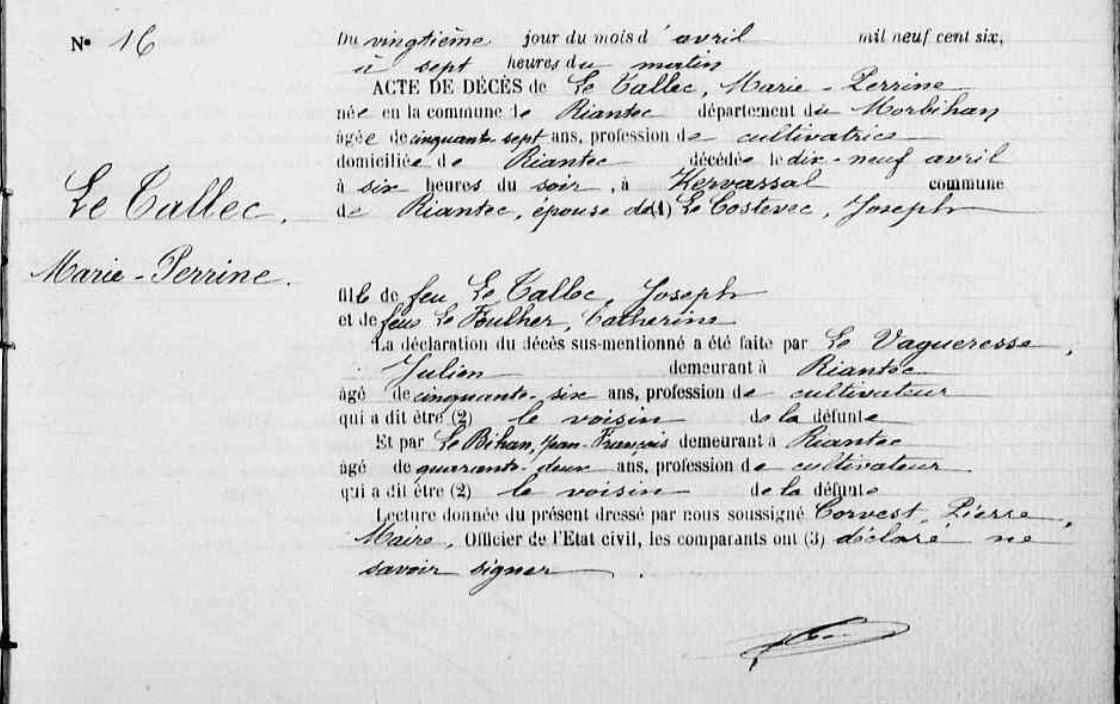 N° 16
Du vingtième jour du mois d'avril mil neuf cent six,
à sept heures du matin
ACTE DE DÉCÈS de Le Tallec, Marie-Perrine
née en la commune de Riantec département du Morbihan
âgée de cinquante sept ans, profession de cultivatrice
domiciliée de Riantec décédée le dix-neuf avril
à six heures du soir, à Kervassal commune
de Riantec, épouse de (1) Le Costevec, Joseph
Le Tallec,
Marie-Perrine.
fille de feu Le Tallec, Joseph
et de feue Le Foulher, Catherine
La déclaration du décès sus-mentionné a été faite par Le Vagueresse,
Julien demeurant à Riantec
âgé de cinquante-six ans, profession de cultivateur
qui a dit être (2) le voisin de la défunte
Et par Le Bihan, Jean-François demeurant à Riantec
âgé de quarante-deux ans, profession de cultivateur
qui a dit être (2) le voisin de la défunte
Lecture donnée du présent dressé par nous soussigné Corvest, Pierre,
Maire, Officier de l'Etat civil, les comparants ont (3) déclaré ne
savoir signer.